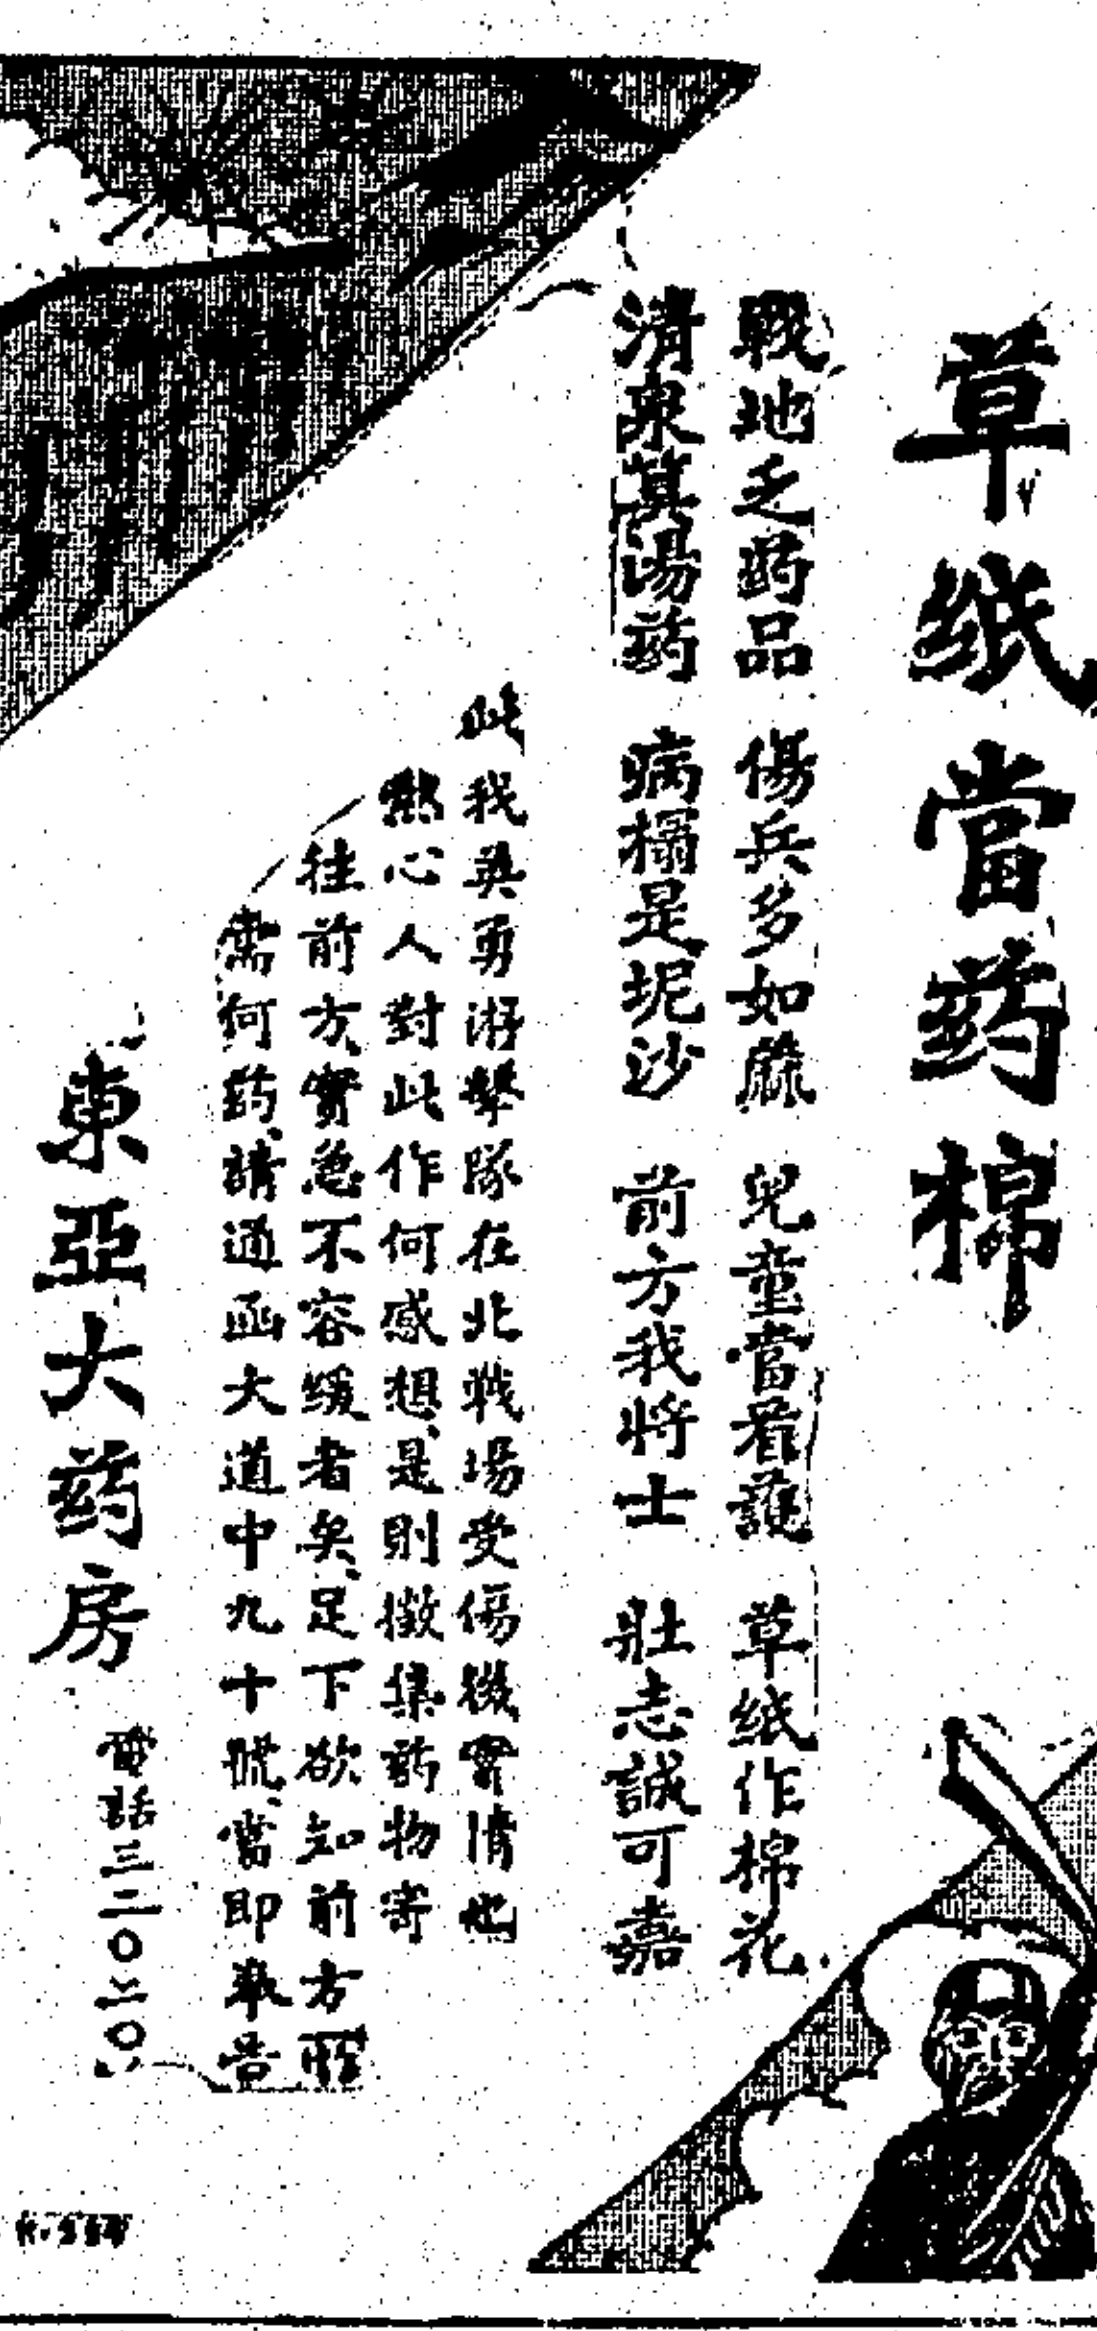 草紙當药棉
戰地乏药品 傷兵多如蔴 兒童當看護 草紙作棉花
清泉萁湯药 病榻是坭沙 前方我将士 壯志誠可嘉
此我英勇游擊隊在北戰場受傷後實情也
熱心人對此作何感想、是則徵集药物寄
往前方、實急不容緩者矣、足下欲知前方所
需何药、請通函大道中九十號、當即奉告
東亞大药房
電話三二〇二〇